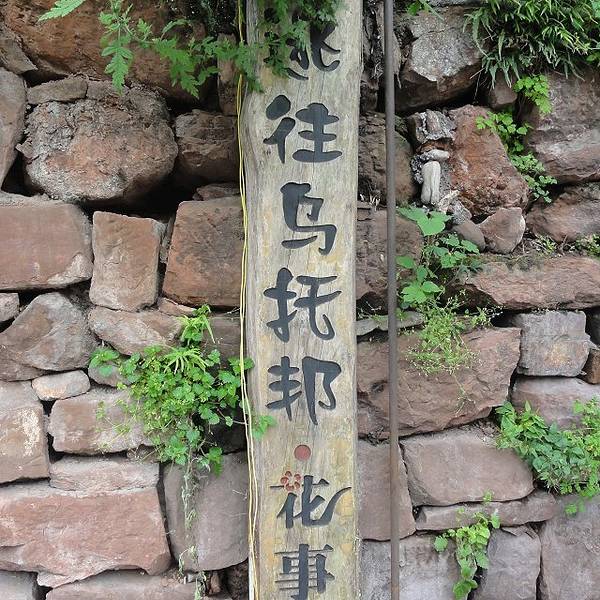 往乌托邦·花事